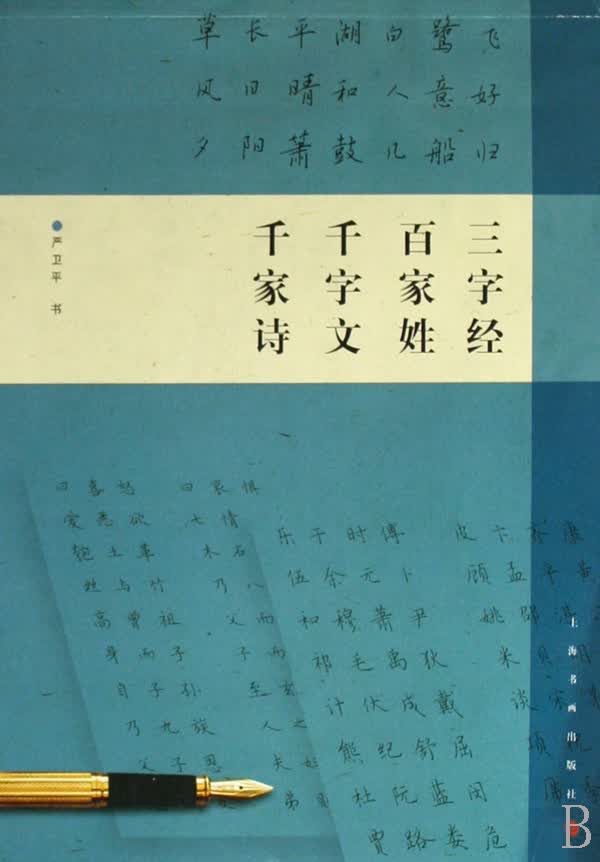 草长平湖白鹭飞
风日晴和人意好
夕阳箫鼓几船归
三字经
百家姓
千字文
千家诗
严卫平 书
曰喜怒 曰哀惧
爱恶欲 七情
匏土革 木石
丝与竹 乃八
高曾祖 父而
身而子 子而
自子孙 至玄
乃九族 人之
父子恩 夫妇
弟
乐于时傅 皮卞齐康
伍余元卜 顾孟平黄
和穆萧尹 姚邵湛
祁毛禹狄 米贝明
计伏成戴 谈宋
熊纪舒屈 项祝
杜阮蓝闵
贾路娄危
上海书画出版社
B